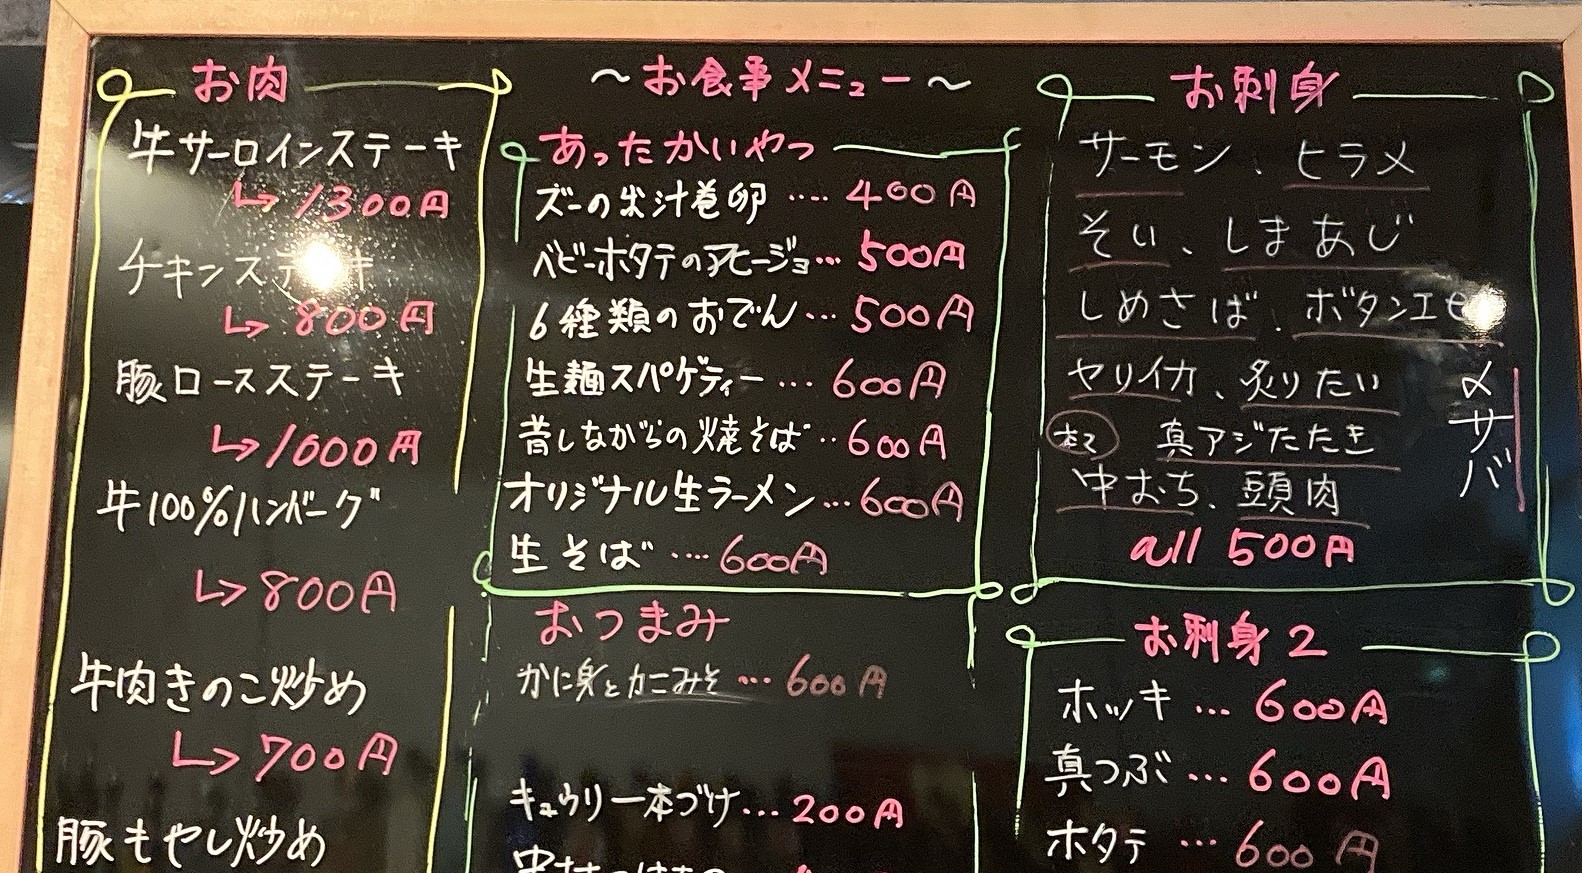 お肉
牛サーロインステーキ
↳ 1300円
チキンステーキ
↳ 800円
豚ロースステーキ
↳ 1000円
牛100%ハンバーグ
↳ 800円
牛肉きのこ炒め
↳ 700円
豚もやし炒め
～お食事メニュー～
あったかいやつ
ズーの出汁巻卵 ‥‥ 400円
ベビーホタテのアヒージョ… 500円
6種類のおでん… 500円
生麺スパゲティー… 600円
昔しながらの焼そば‥600円
オリジナル生ラーメン…600円
生そば ‥‥ 600円
おつまみ
かに身とカニみそ … 600円
キュウリ一本づけ…200円
お刺身
サーモン、ヒラメ
そい、しまあじ
しめさば、ボタンエビ
ヤリイカ、炙りたい
真アジたたき
中おち、頭肉
〆サバ
all 500円
お刺身2
ホッキ … 600円
真つぶ … 600円
ホタテ … 600円